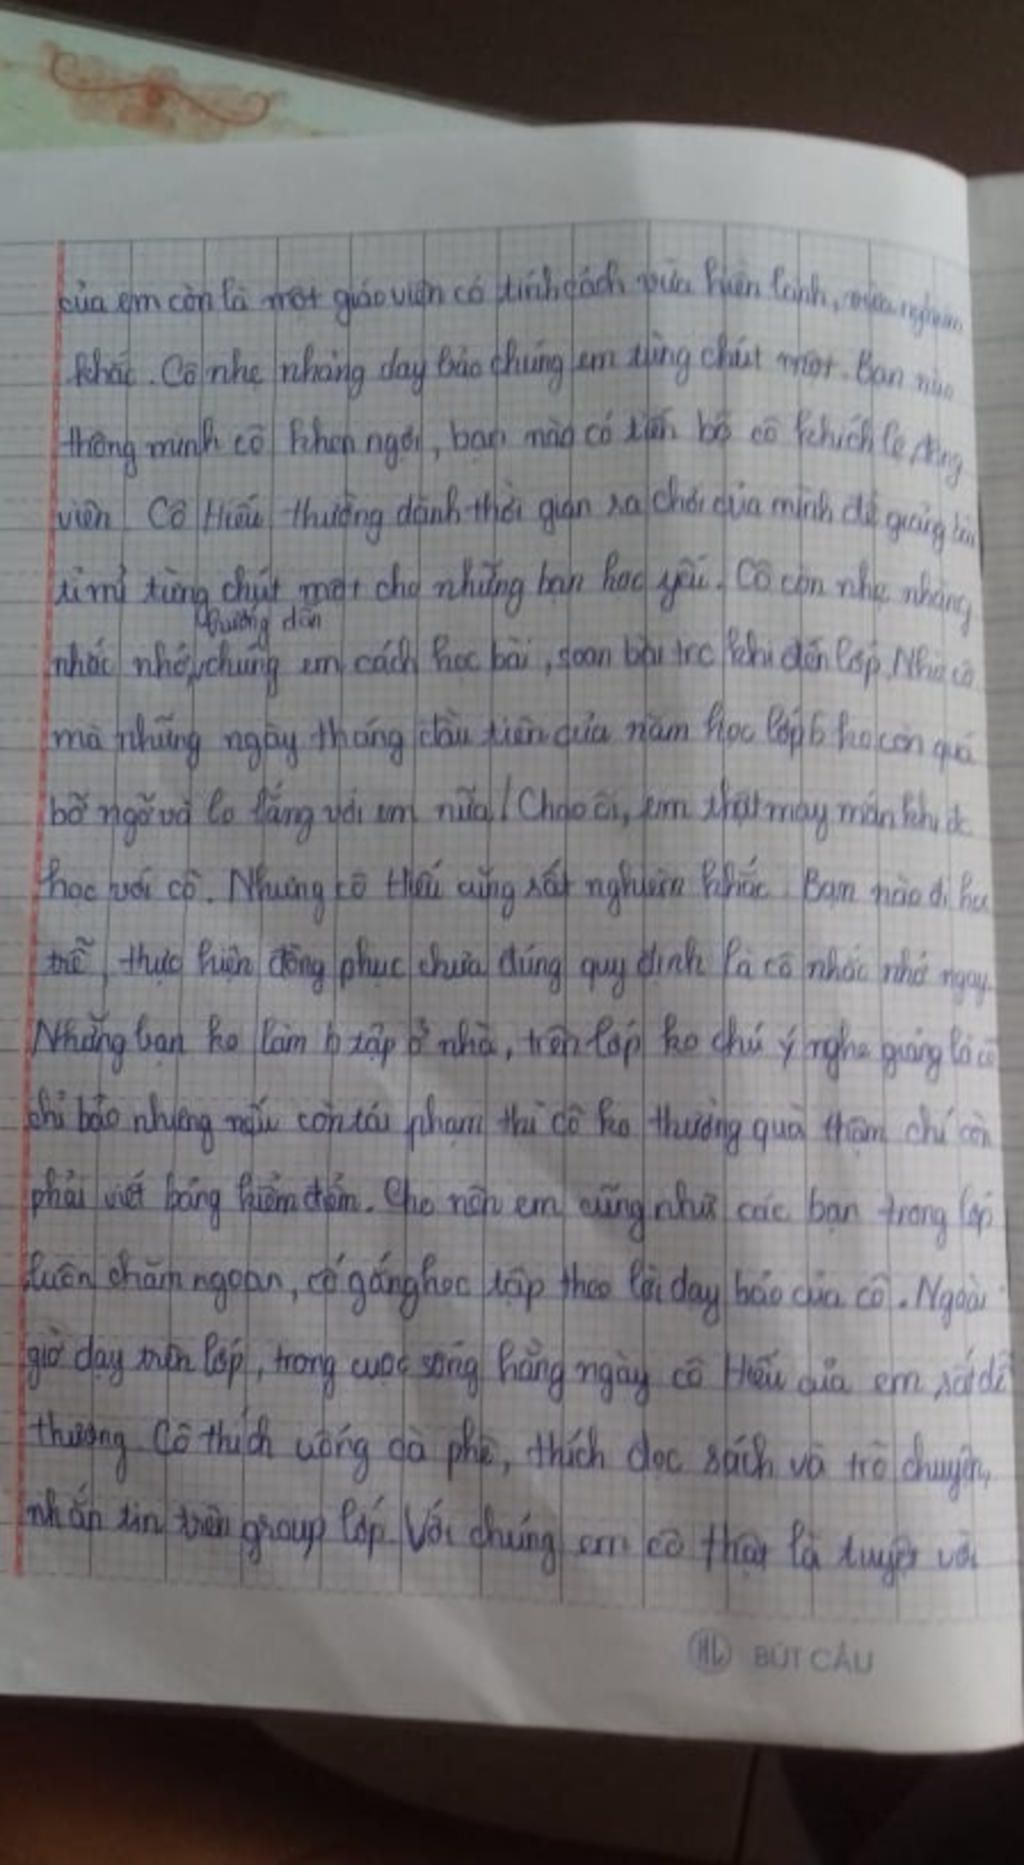 của em còn là một giáo viên có tính cách vừa hiền lành, vừa nghiêm
khắc. Cô nhẹ nhàng dạy bảo chúng em từng chút một. Bạn nào
thông minh cô khen ngợi, bạn nào có tiến bộ cô khích lệ động
viên. Cô Hiếu thường dành thời gian ra chơi của mình để giảng bài
tỉ mỉ từng chút một cho những bạn học yếu. Cô còn nhẹ nhàng
hướng dẫn
nhắc nhở, chúng em cách học bài, soạn bài trc khi đến lớp. Nhờ cô
mà những ngày tháng đầu tiên của năm học lớp 6 ko còn quá
bỡ ngỡ và lo lắng với em nữa! Chao ôi, em thật may mắn khi đc
học với cô. Nhưng cô Hiếu cũng rất nghiêm khắc. Bạn nào đi học
trễ, thực hiện đồng phục chưa đúng quy định là cô nhắc nhở ngay.
Những bạn ko làm b tập ở nhà, trên lớp ko chú ý nghe giảng là cô
chỉ bảo nhưng nếu còn tái phạm thì cô ko thưởng quà thậm chí còn
phải viết bảng kiểm điểm. Cho nên em cũng như các bạn trong lớp
luôn chăm ngoan, cố gắng học tập theo lời dạy bảo của cô. Ngoài
giờ dạy trên lớp, trong cuộc sống hằng ngày cô Hiếu của em rất dễ
thương. Cô thích uống cà phê, thích đọc sách và trò chuyện,
nhắn tin trên group lớp. Với chúng em cô thật là tuyệt vời
HL BÚT CÂU